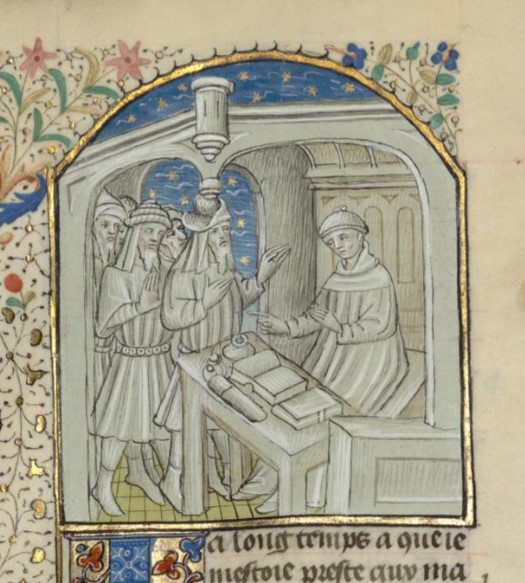 a long temps a que ie
mestoie preste auy ma